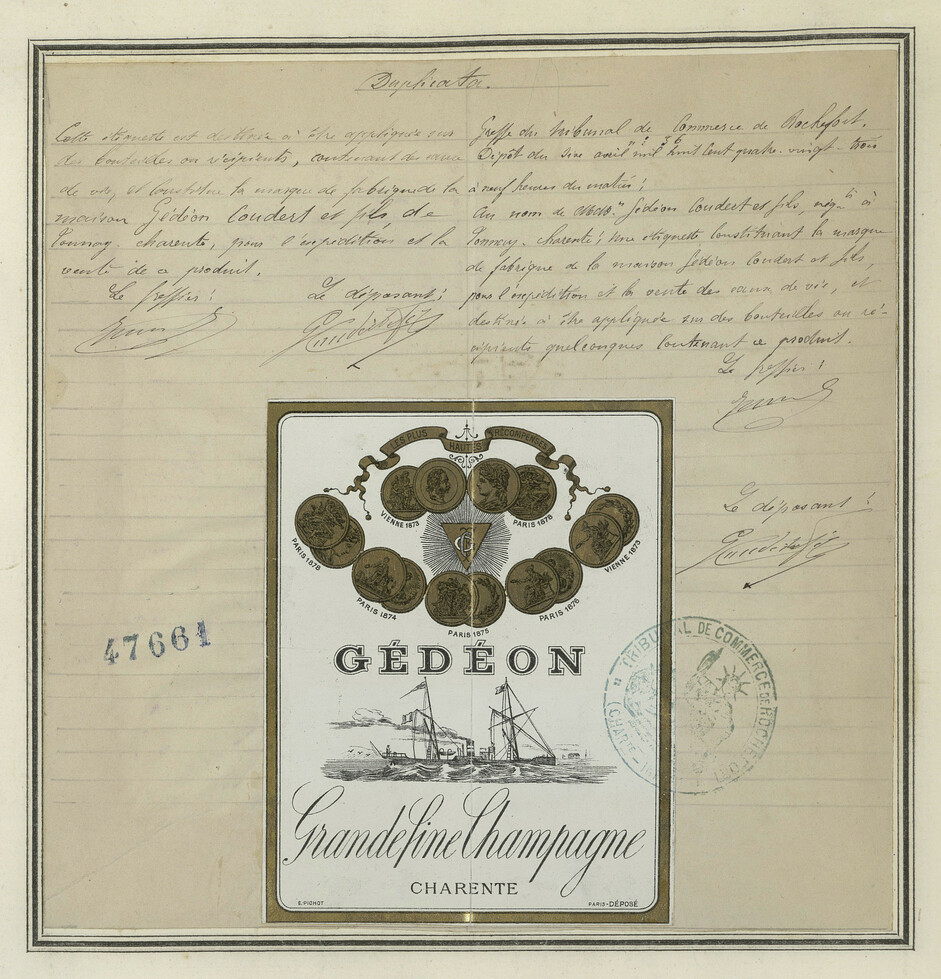 Duplicata.
Cette étiquette est destinée à être appliquée sur
des bouteilles ou récipients, contenant des eaux
de vie, et constitue la marque de fabrique de la
maison Gédéon Coudert et fils de
Tonnay-charente, pour l'expédition et la
vente de ce produit.
Le greffier:
Le déposant:
Greffe du tribunal de Commerce de Rochefort.
Dépôt du six avril mil huit cent quatre-vingt-trois
à neuf heures du matin;
Au nom de Gédéon Coudert et fils, nég.ts à
Tonnay-charente; une étiquette constituant la marque
de fabrique de la maison Gédéon Coudert et fils,
pour l'expédition et la vente des eaux de vie, et
destinée à être appliquée sur des bouteilles ou ré-
cipients quelconques contenant ce produit.
Le greffier:
Le déposant:
LES PLUS HAUTES RÉCOMPENSES
VIENNE 1873
PARIS 1875
PARIS 1878
VIENNE 1873
PARIS 1874
PARIS 1876
PARIS 1875
GC
GÉDÉON
Grande fine Champagne
CHARENTE
E. PICHOT
PARIS-DÉPOSÉ
47661
TRIBUNAL DE COMMERCE DE ROCHEFORT